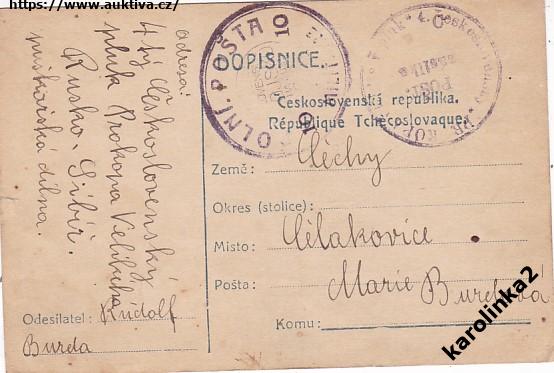 https://www.auktiva.cz/
Adresa:
4tý Československý
pluk Prokopa Velikeho
Rusko. Sibiř.
puškarská dílna.
POLNÍ POŠTA
DOPISNICE.
Československá republika.
République Tchécoslovaque.
Země: Čéchy
Okres (stolice):
Místo: Čélakovice
Pošta: Marie Burdová
Komu:
Odesílatel: Rudolf
Burda
karolinka2